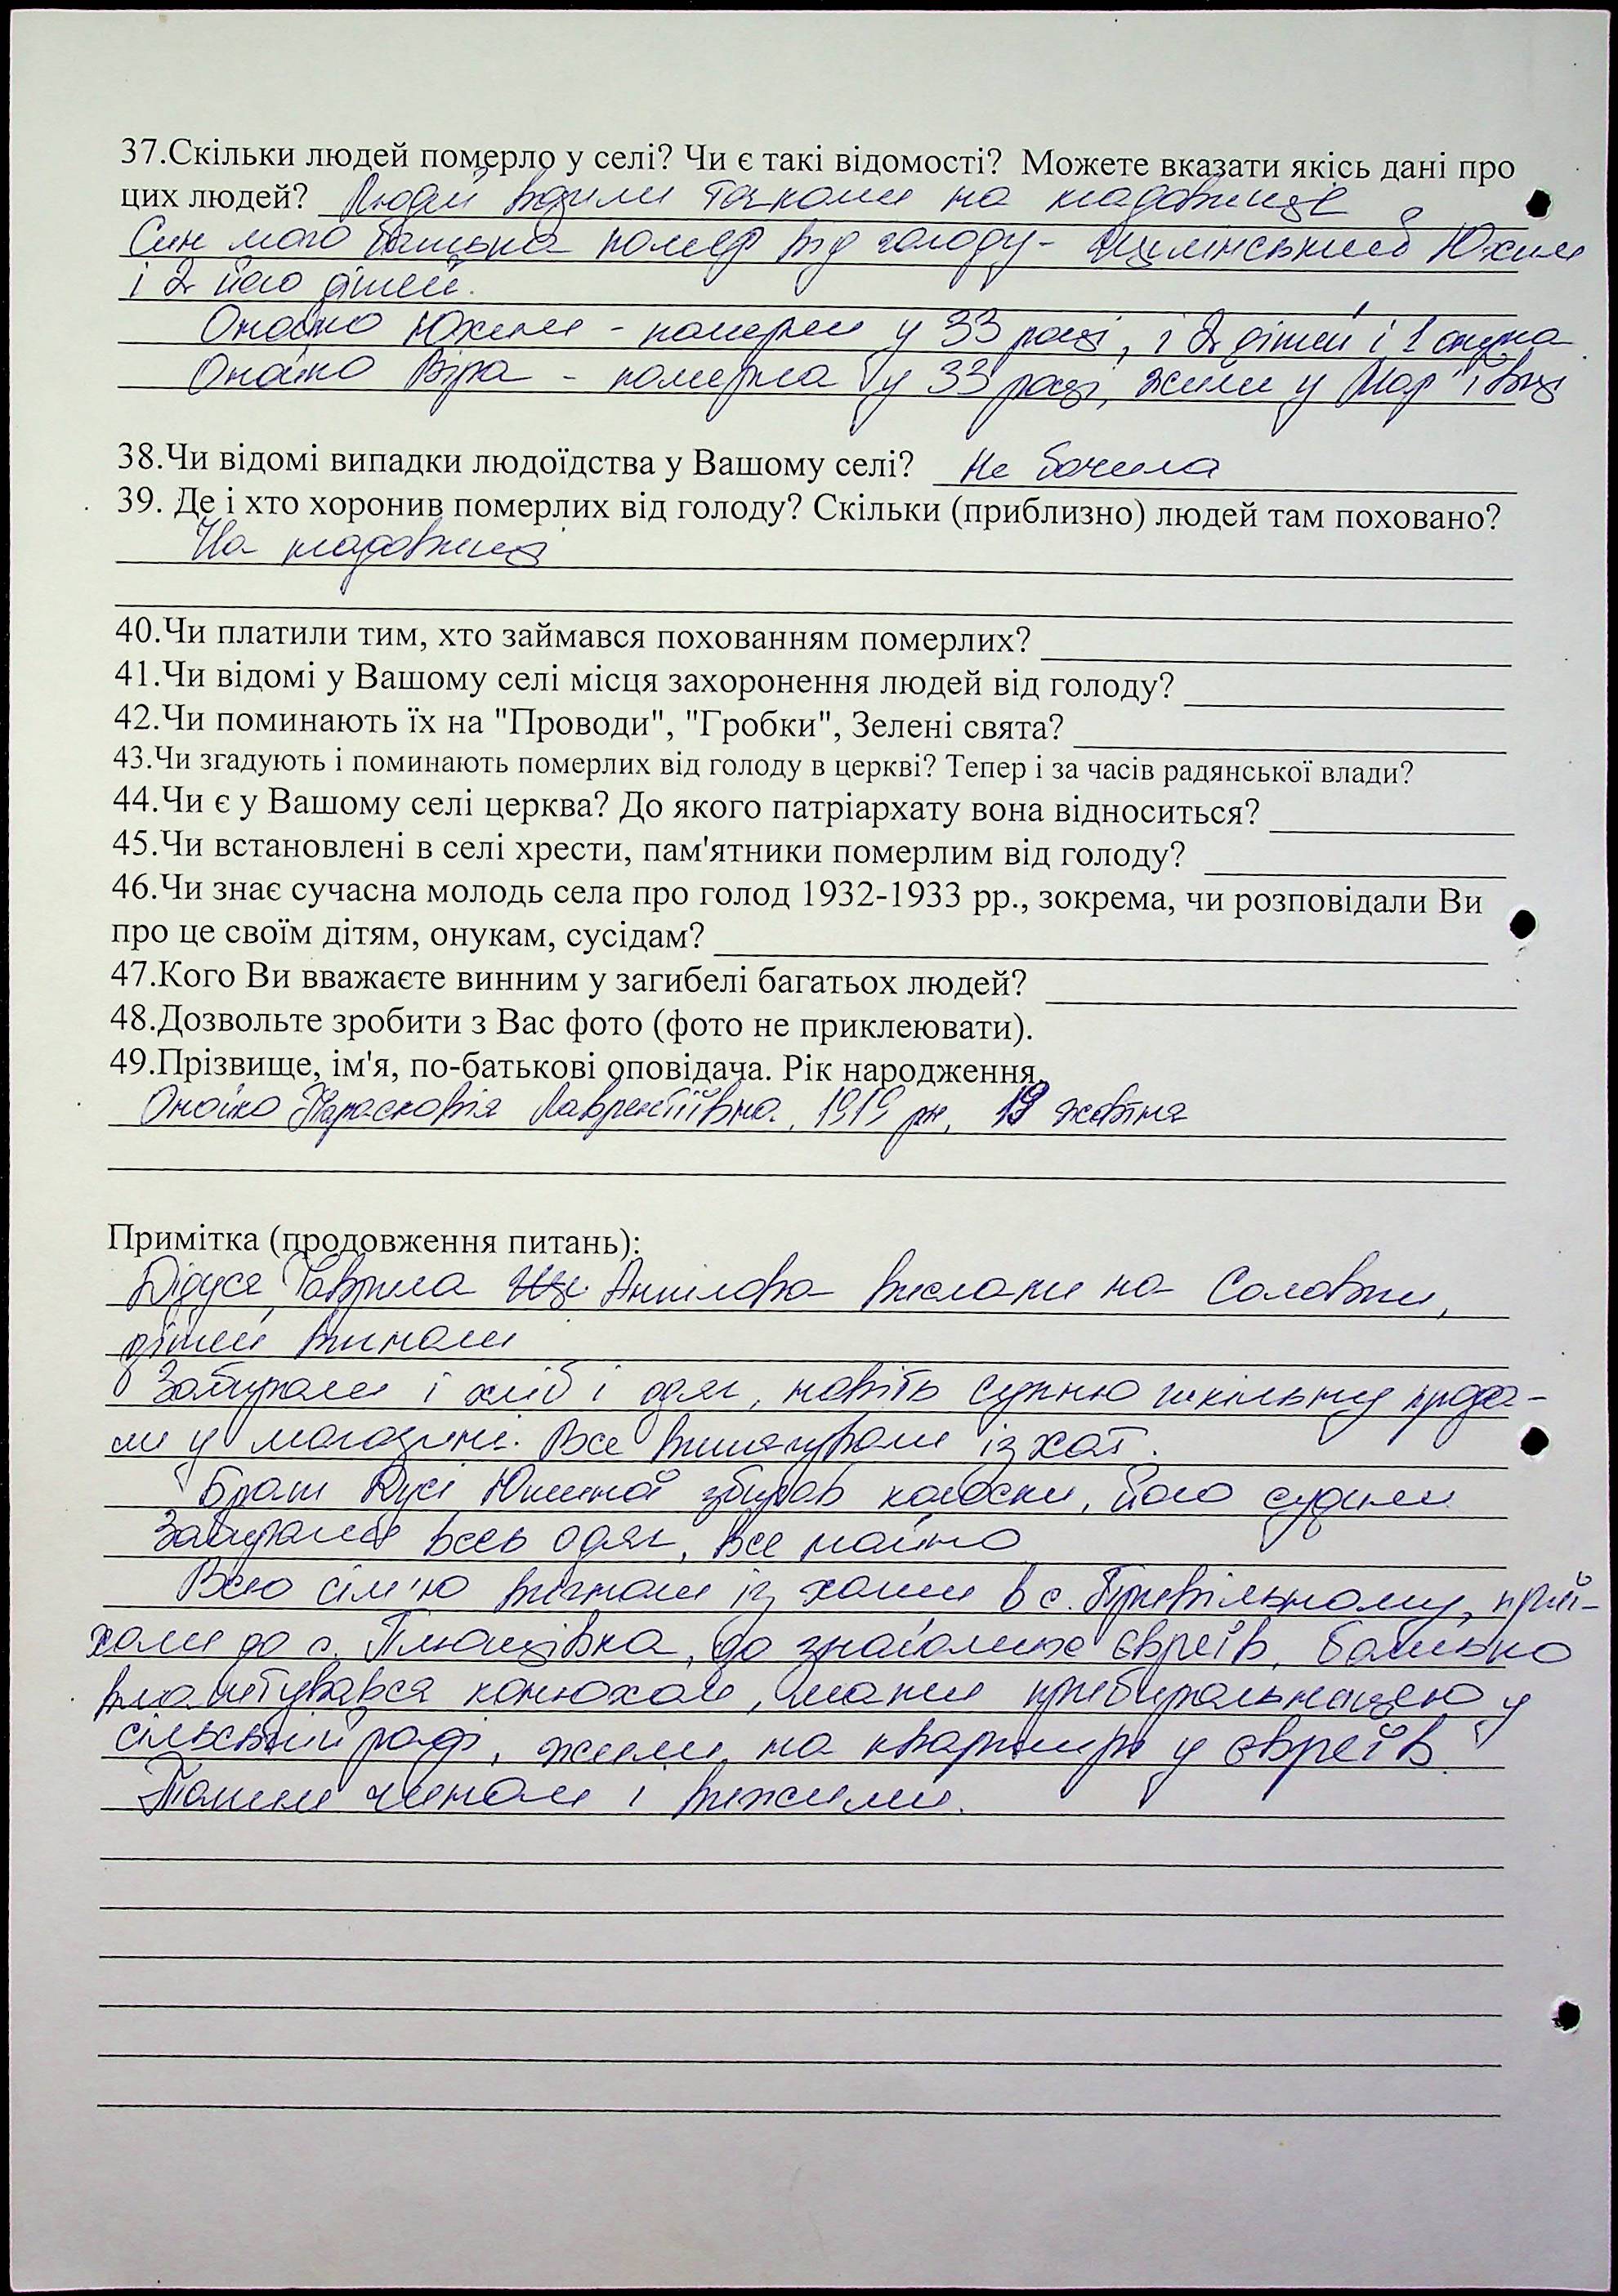 37.Скільки людей померло у селі? Чи є такі відомості? Можете вказати якісь дані про
цих людей? Людей возили тачками на кладовище
Син мого батька помер від голоду - Юхим
і 2 його дітей.
Онойко Юхим - померли у 33 році, і 2 дітей і 1 онука
Онойко Віра - померла у 33 році, жили у Мар'івці
38.Чи відомі випадки людоїдства у Вашому селі? Не бачила
39. Де і хто хоронив померлих від голоду? Скільки (приблизно) людей там поховано?
На кладовищі
40.Чи платили тим, хто займався похованням померлих?
41.Чи відомі у Вашому селі місця захоронення людей від голоду?
42.Чи поминають їх на "Проводи", "Гробки", Зелені свята?
43.Чи згадують і поминають померлих від голоду в церкві? Тепер і за часів радянської влади?
44.Чи є у Вашому селі церква? До якого патріархату вона відноситься?
45.Чи встановлені в селі хрести, пам'ятники померлим від голоду?
46.Чи знає сучасна молодь села про голод 1932-1933 рр., зокрема, чи розповідали Ви
про це своїм дітям, онукам, сусідам?
47.Кого Ви вважаєте винним у загибелі багатьох людей?
48.Дозвольте зробити з Вас фото (фото не приклеювати).
49.Прізвище, ім'я, по-батькові оповідача. Рік народження.
Онойко Парасковія Лаврентіївна, 1919 рн, 19 жовтня
Примітка (продовження питань):
Дідуся Гаврила вислали на Соловки,
дітей вигнали
Забирали і хліб і одяг, навіть сукню шкільну прода-
ли у магазині. Все витягували із хат.
Брат Дусі збирав колоски, його судили
Забирали весь одяг, все майно
Всю сім'ю вигнали із хати в с. приї-
хали до с. до знайомих євреїв, батько
влаштувався конюхом, мати прибиральницею у
сільській раді, жили на квартирі у євреїв.
Таким чином і вижили.